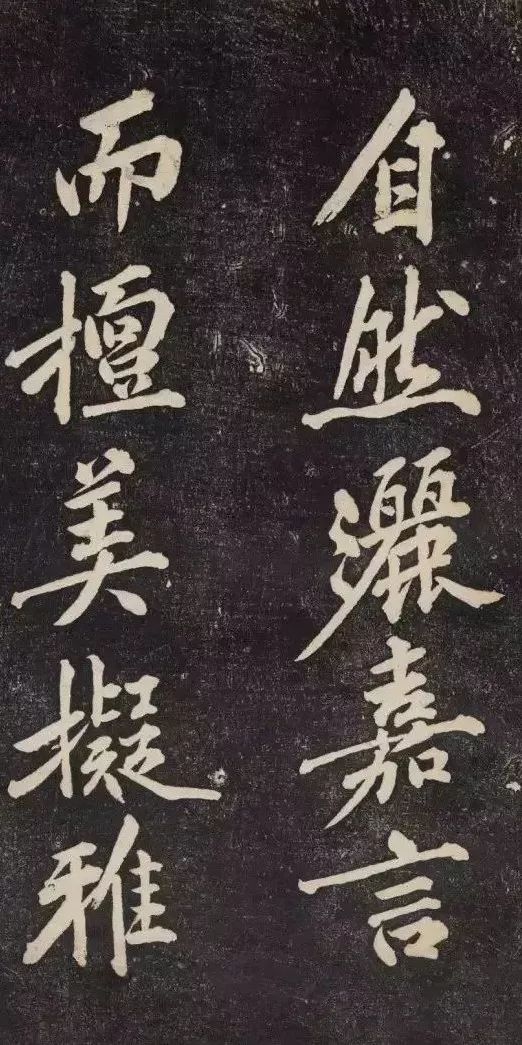 自然灑嘉言
而擅美擬雅